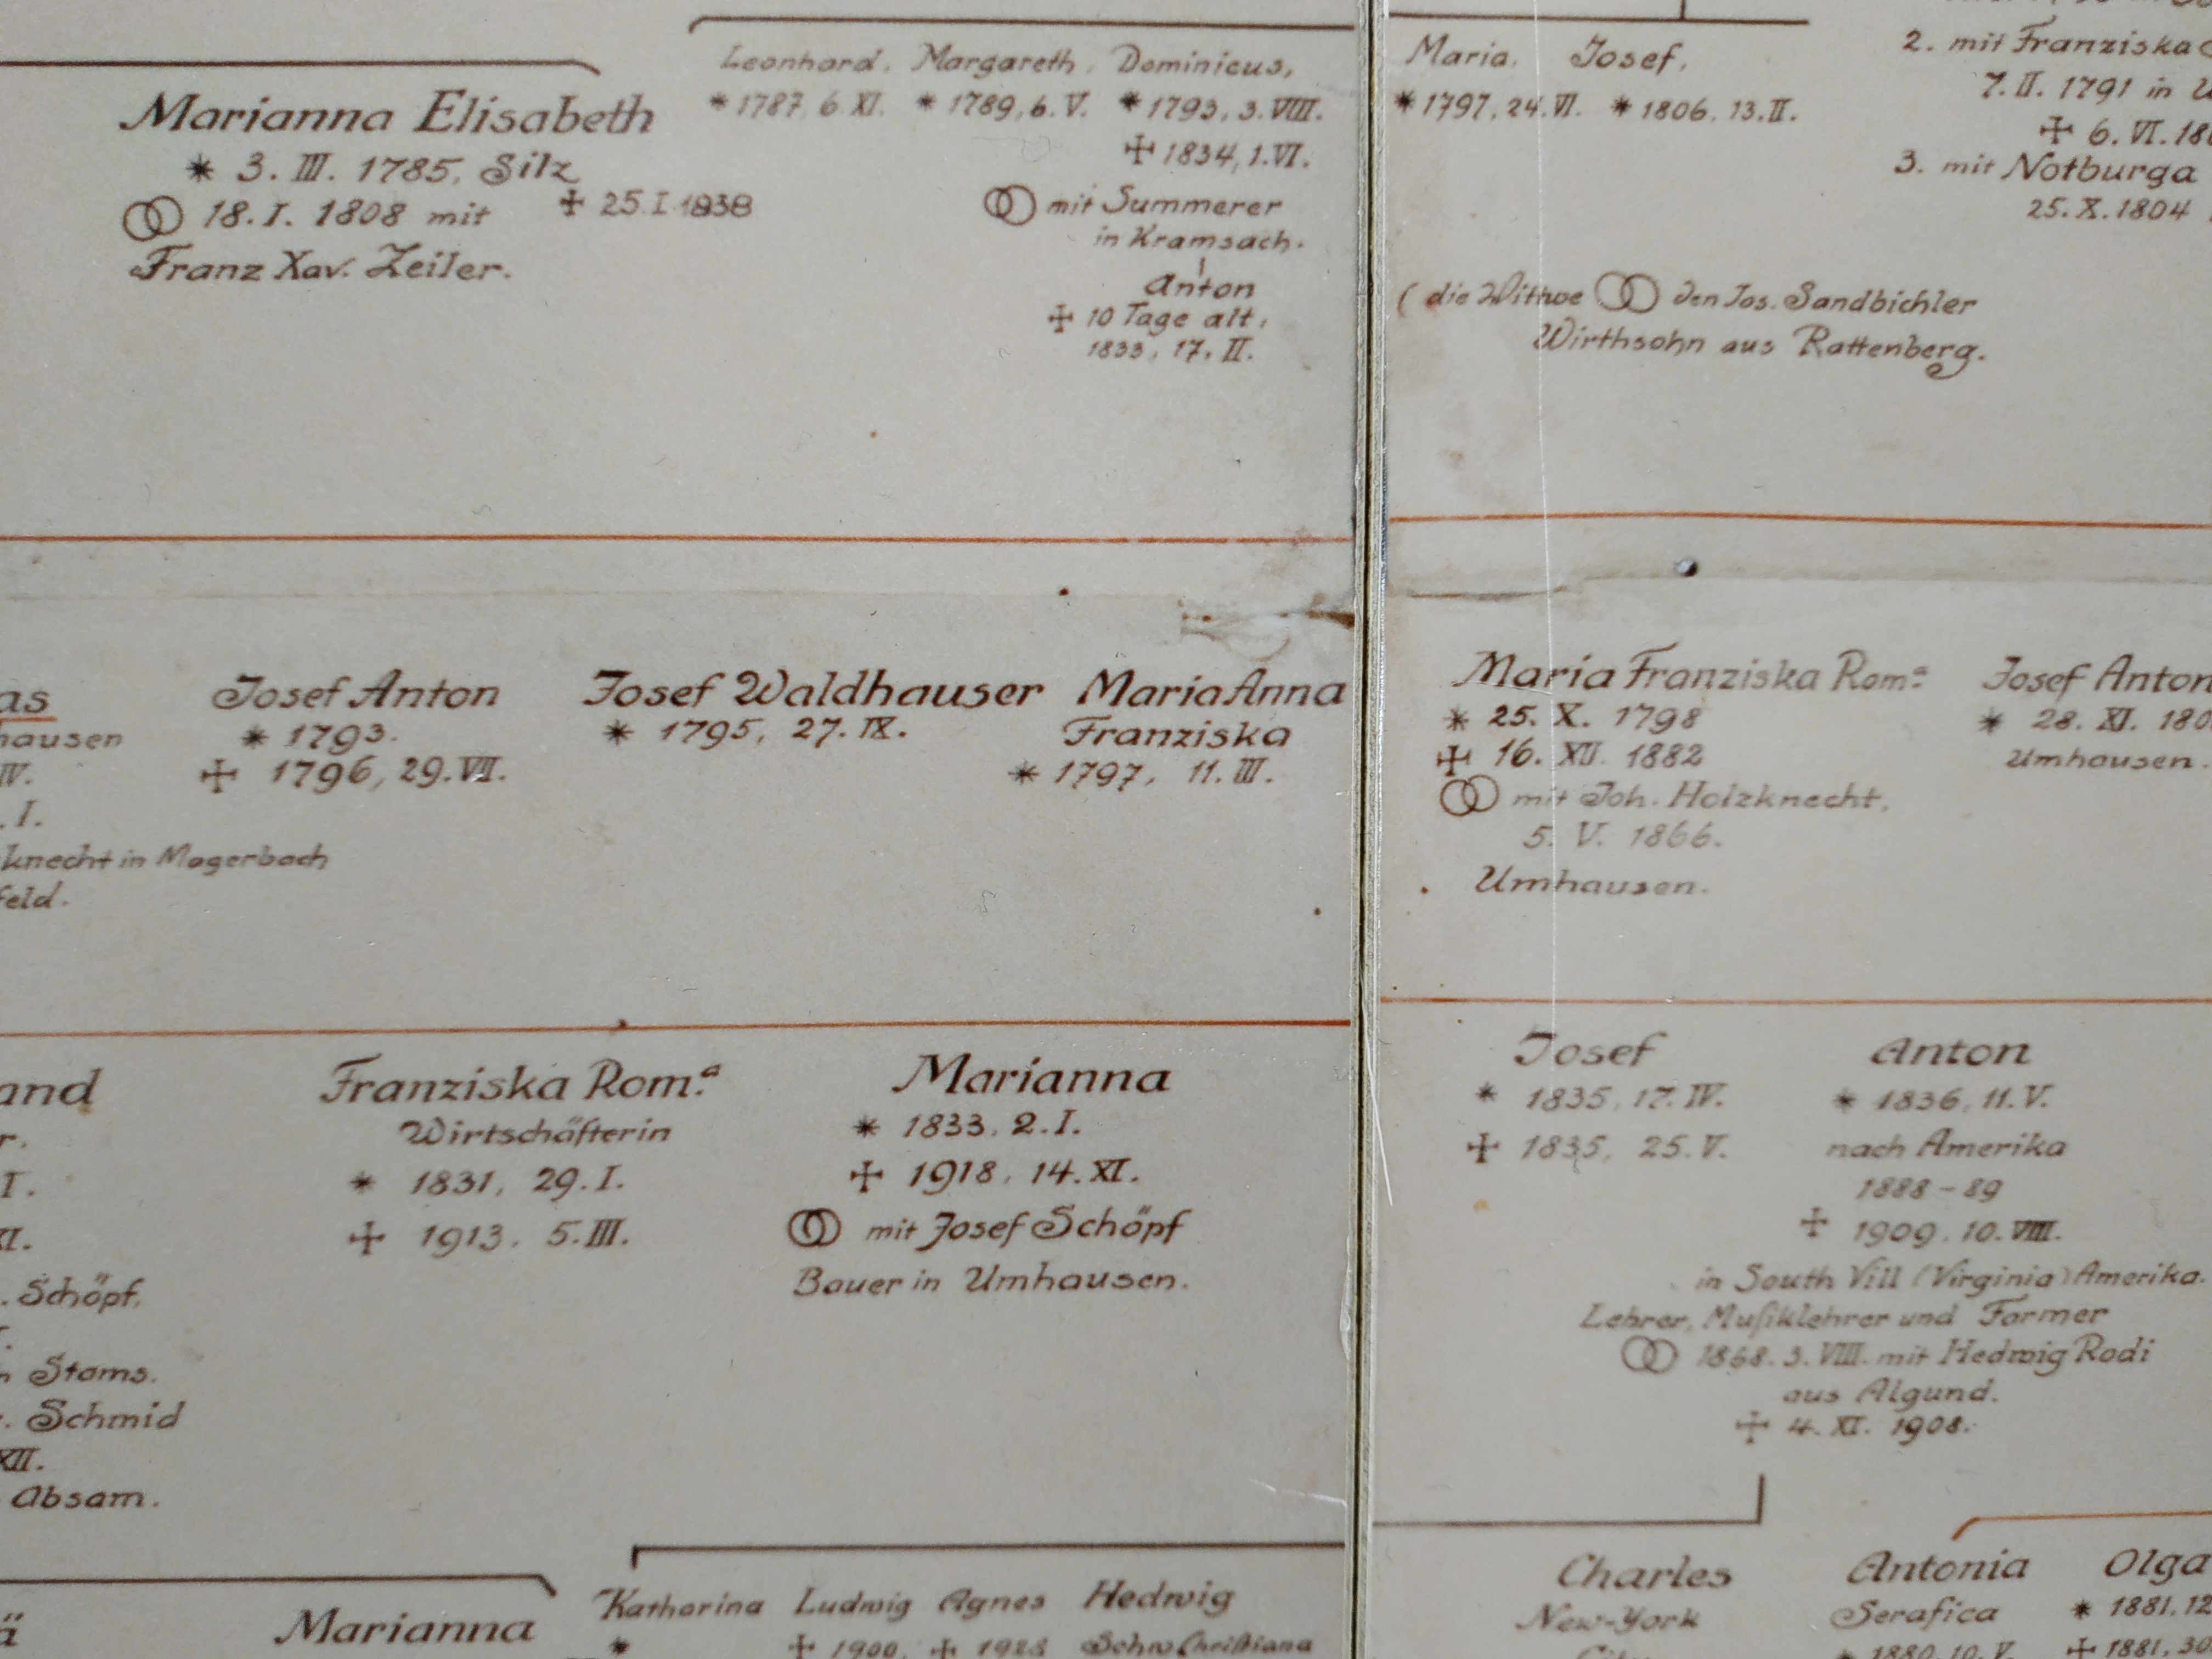 Marianna Elisabeth
* 3. III. 1785, Silz
18. I. 1808 mit
✠ 25. I. 1838
Franz Xav. Zeiler.
Leonhard, Margareth, Dominicus,
* 1787, 6. XI. * 1789, 6. V. * 1793, 3. VIII.
✠ 1834, 1. VI.
mit Summerer
in Kramsach.
Anton
✠ 10 Tage alt,
1833, 17. II.
Maria, Josef,
* 1797, 24. VI. * 1806, 13. II.
2. mit Franziska
7. II. 1791 in
✠ 6. VI. 18
3. mit Notburga
25. X. 1804
( die Wittwe den Jos. Sandbichler
Wirthsohn aus Rattenberg.
as
hausen
IV.
. I.
knecht in Magerbach
feld.
Josef Anton
* 1793.
✠ 1796, 29. VII.
Josef Waldhauser
* 1795, 27. IX.
Maria Anna
Franziska
* 1797, 11. III.
Maria Franziska Rom.ª
* 25. X. 1798
✠ 16. XII. 1882
mit Joh. Holzknecht,
5. V. 1866.
Umhausen.
Josef Anton
* 28. XI. 180
Umhausen.
and
r.
I.
XI.
. Schöpf,
n Stams.
. Schmid
XII.
Absam.
Franziska Rom.ª
Wirtschäfterin
* 1831, 29. I.
✠ 1913, 5. III.
Marianna
* 1833. 2. I.
✠ 1918, 14. XI.
mit Josef Schöpf
Bauer in Umhausen.
Josef
* 1835, 17. IV.
✠ 1835, 25. V.
Anton
* 1836, 11. V.
nach Amerika
1888 - 89
✠ 1909. 10. VIII.
in South Vill (Virginia) Amerika.
Lehrer, Muſiklehrer und Farmer
1868. 3. VIII. mit Hedwig Rodi
aus Algund.
✠ 4. XI. 1908.
ä
Marianna
Katharina Ludwig Agnes Hedwig
* ✠ 1900, ✠ 1928 Schw. Chriſtiana
Charles
New-York
City
Antonia
Serafica
* 1880, 10. V.
Olga
* 1881, 12
✠ 1881, 30